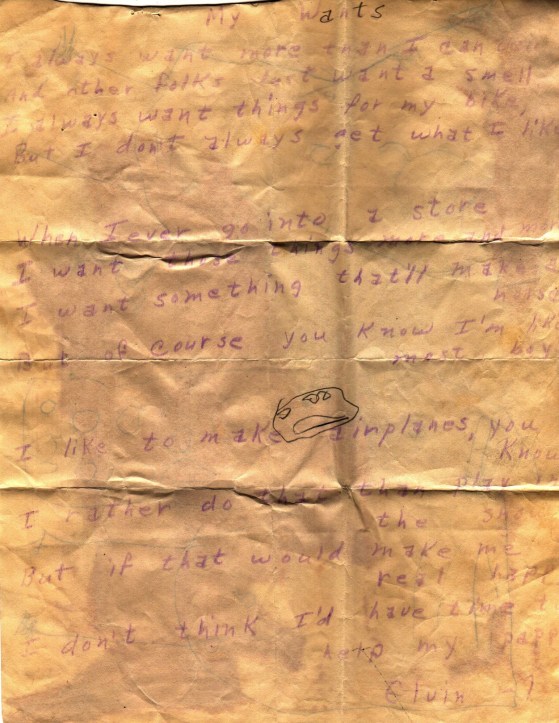 My Wants
I always want more than I can
And other folks just want a smell
I always want things for my bike,
But I don't always get what I like
When I ever go into a store
I want those things more and
I want something that'll make
noise
But of course you know I'm
most boy
I like to make airplanes, you
Know
I rather do that than play
the
But if that would make me
real
I don't think I'd have time
help my
Elvin